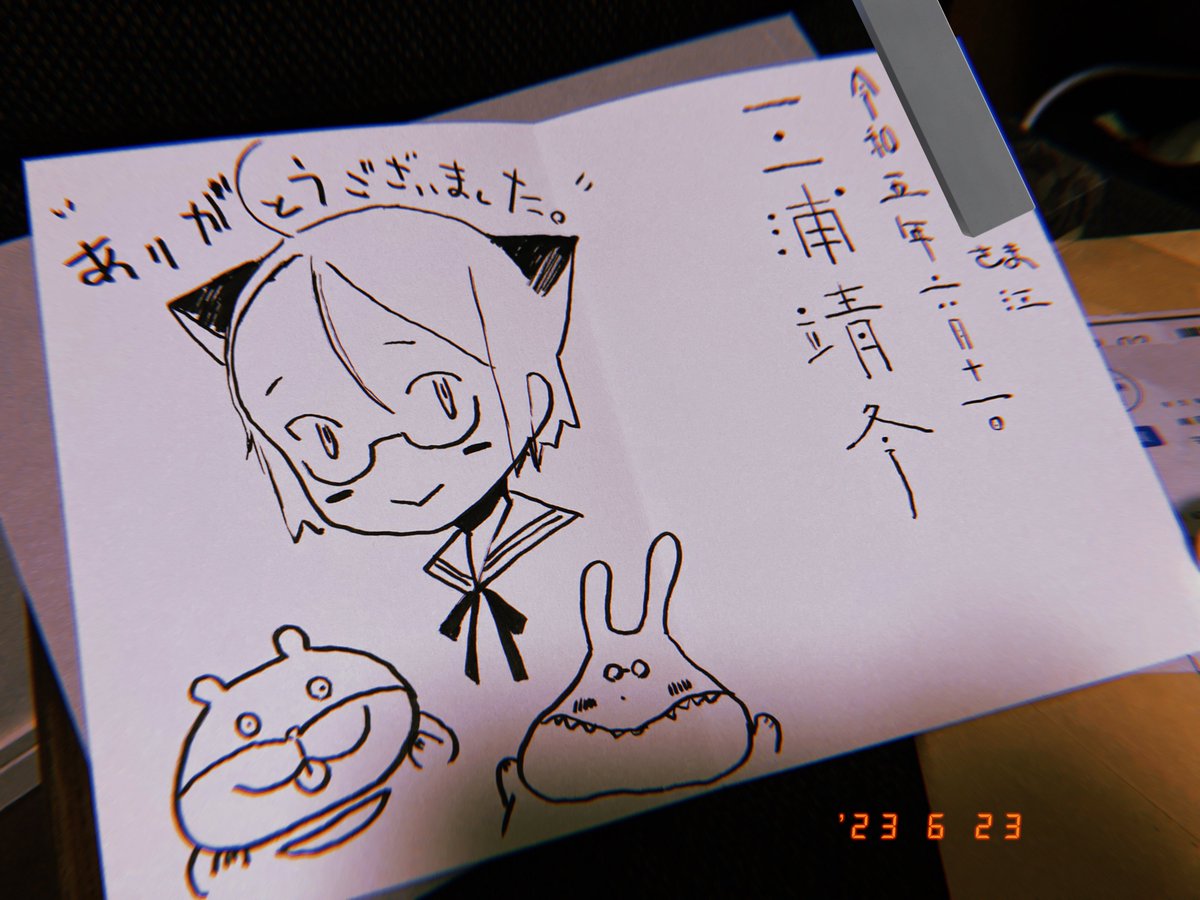 さま江
令和五年六月十一日
三浦靖冬
"ありがとうございました。"
'23 6 23